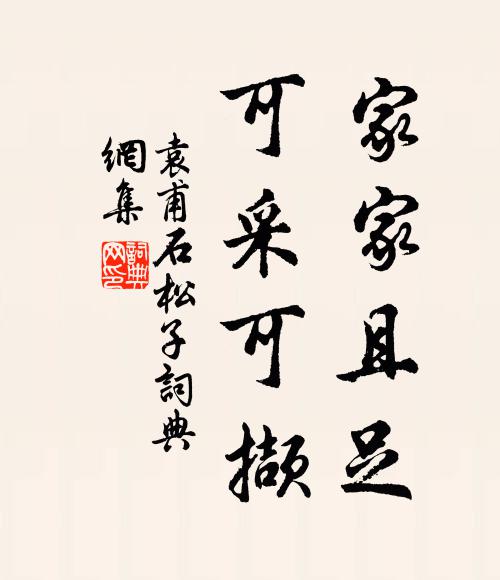 家家且足
可采可擷
袁甫石松子詞典
網集
詞典
网印